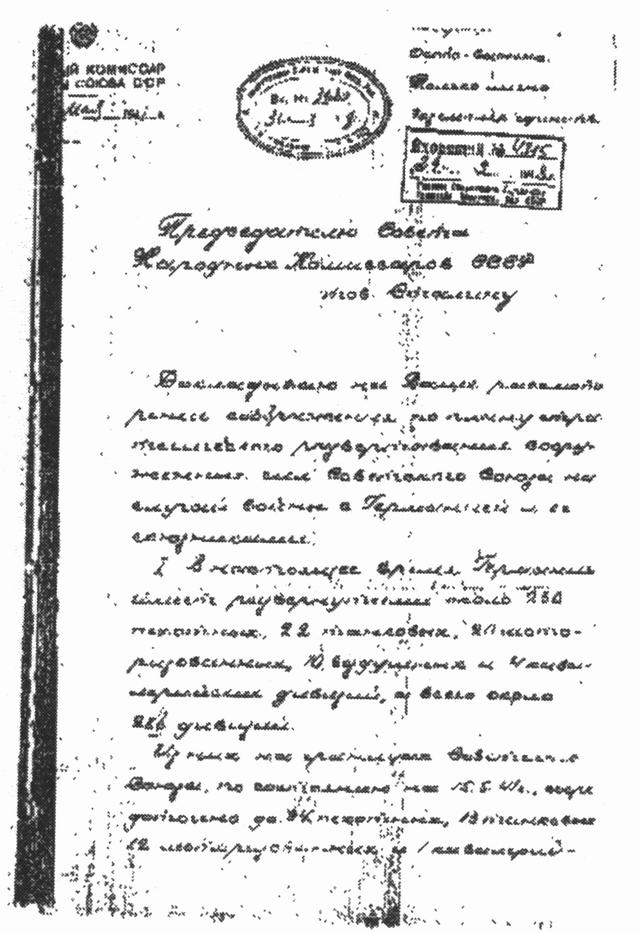 Й КОМИССАР
СОЮЗА ССР
Особо важно
Только лично
Вх. №
ВХОДЯЩИЙ № 4715
Председателю Совета
Народных Комиссаров СССР
тов. Сталину
Докладываю на Ваше рассмот-
рение соображения по плану страте-
гического развертывания воору-
женных сил Советского Союза на
случай войны с Германией и ее
союзниками.
I В настоящее время Германия
имеет развернутыми около 230
пехотных, 22 танковых, 20 мото-
ризованных, 10 воздушных и 4 кава-
лерийских дивизий, а всего около
286 дивизий.
Из них на границах Советского
Союза, по состоянию на 15.5.41г., сосре-
доточено до 86 пехотных, 13 танковых
12 моторизованных и 1 кавалерий-